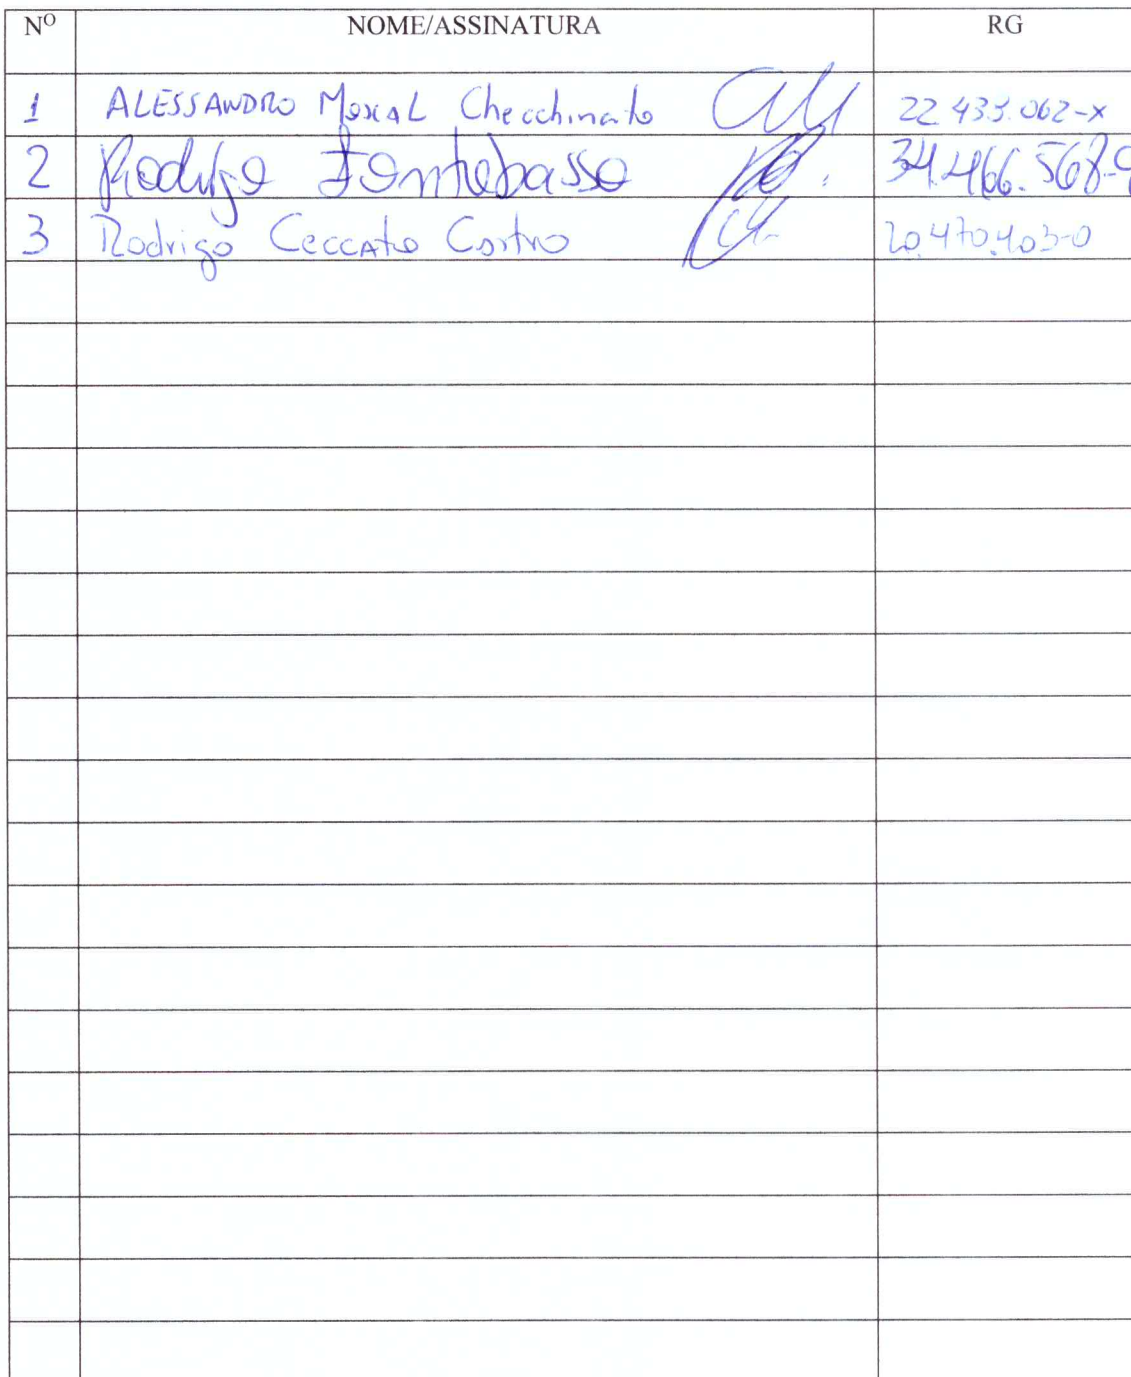 Nº NOME/ASSINATURA RG
1 ALESSANDRO Checchinato 22.435.062-x
2 Rodrigo Fontebasso 34.466.568-9
3 Rodrigo Ceccato Castro 20.470.403-0